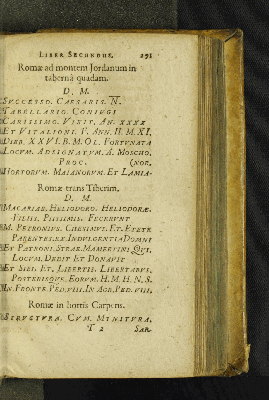 LIBER SECUNDUS. 291
Romæ ad montem Jordanum in
taberna quadam.
D. M.
SUCCESSO. CAESARIS. N.
TABELLARIO. CONIUGI
CARISSIMO. VIXIT. AN. XXXX
ET VITALIONI. F. ANN. II. M. XI.
DIEB. XXVI. B. M. OL. FORTUNATA
LOCUM. ADSIGNATUM. A. MOSCHO.
PROC. (NOR.
HORTORUM. MAIANORUM. ET LAMIA-
Romæ trans Tiberim.
D. M.
MACARIAE. HELIODORO. HELIODORÆ.
FILIIS. PIISSIMIS. FECERUNT
M. PETRONIUS. CHESIMUS. ET.
PARENTES. EX. INDULGENTIA DOMNI
ET PATRONI. MAMERTINI. QUI.
LOCUM. DEDIT ET DONAVIT
ET SIBI. ET. LIBERTIS. LIBERTABUS.
POSTERISQUE. EORUM. H. M. H. N. S.
IN. FRONTE. PED. VIII. IN AGR. PED. VIII.
Romæ in hortis Carpens.
STRUCTURA. CUM. MUNITURA.
T 2 SAR.